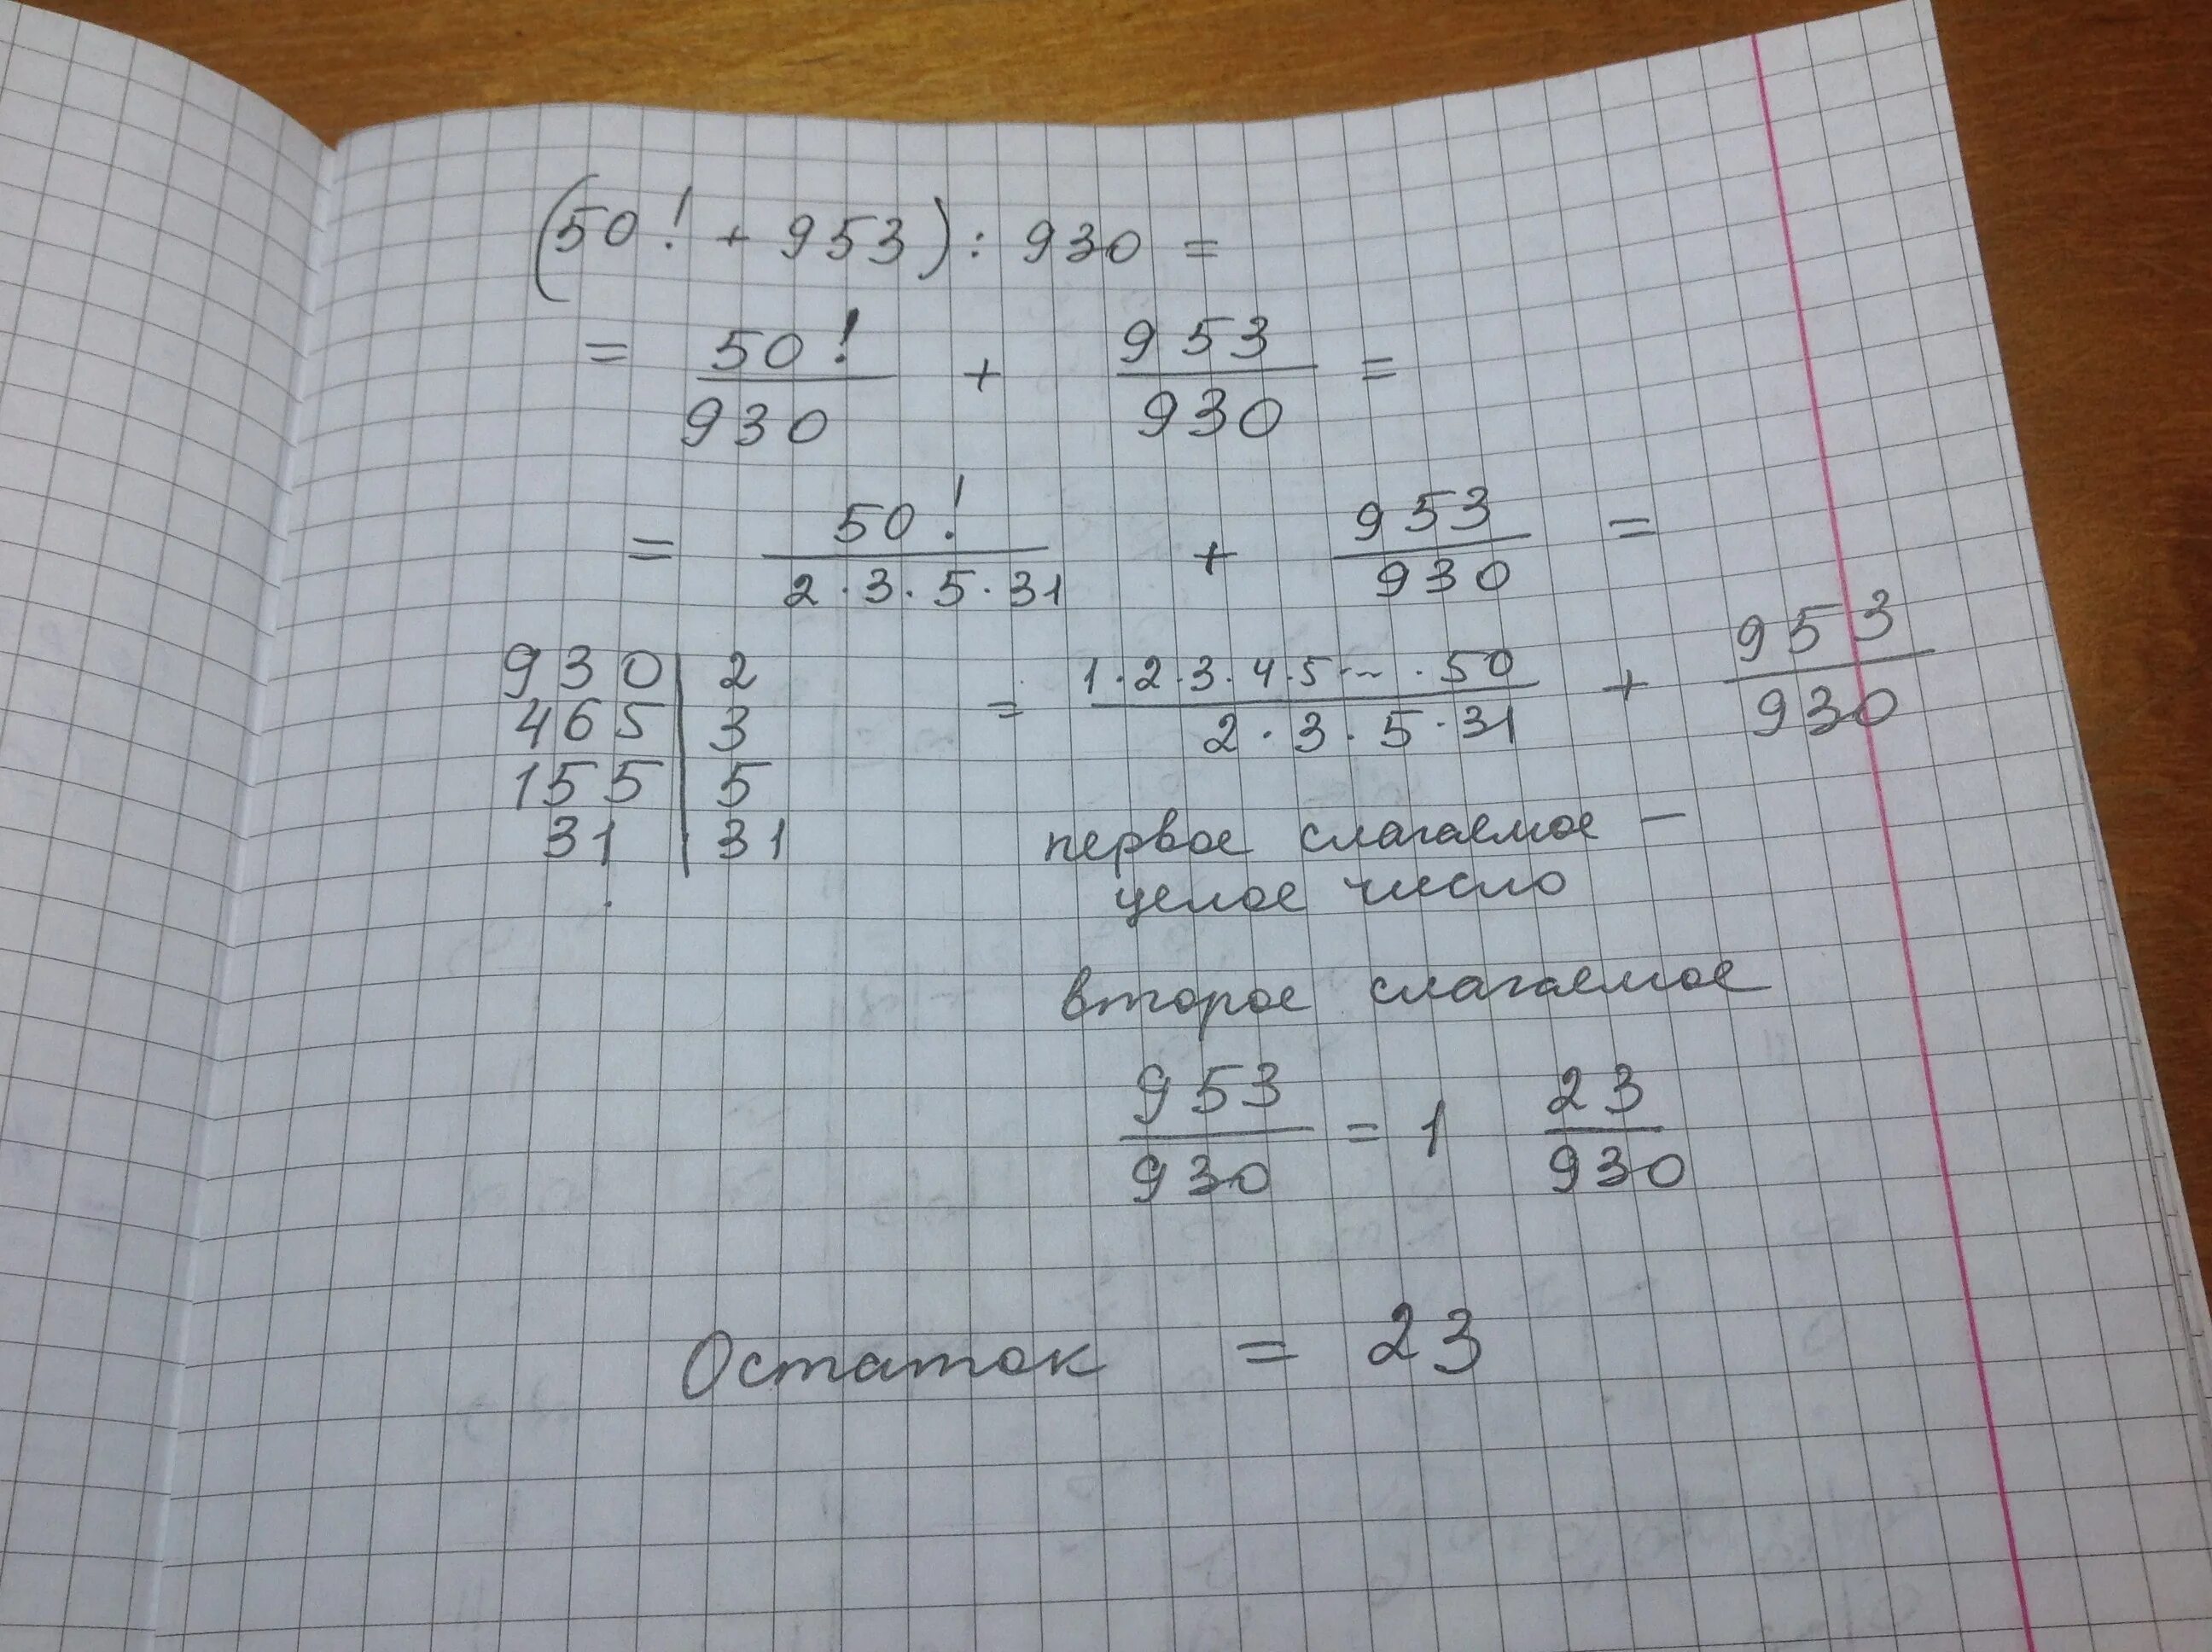 (50! + 953) : 930 =
= 50!/930 + 953/930 =
= 50!/(2 · 3 · 5 · 31) + 953/930 =
930 | 2
465 | 3
155 | 5
31 | 31
= (1 · 2 · 3 · 4 · 5 · ... · 50)/(2 · 3 · 5 · 31) + 953/930
первое слагаемое —
целое число
второе слагаемое
953/930 = 1 23/930
Остаток = 23